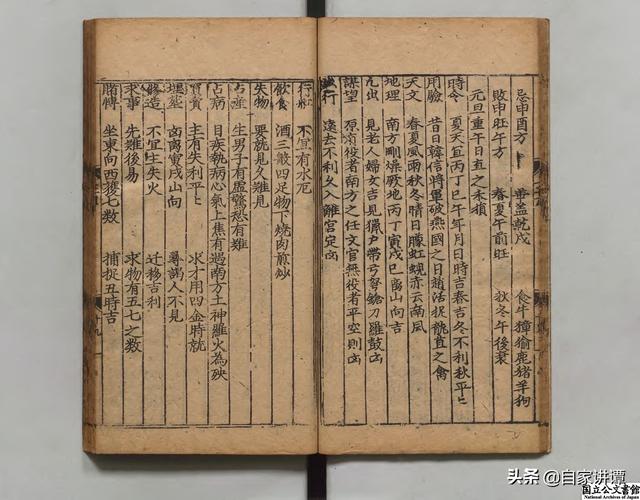 忌申酉方 乾戌 食牛獐鹿猪羊狗
敗申旺午方 春夏午前旺 秋冬午後衰
元旦重午日直之
時令 夏天宜丙丁巳午年月日時吉春吉冬不利秋平〻
用驗 昔日韓信將軍破燕國之日趙活捉直之禽
天文 春夏風雨秋冬晴日朦虹蜺赤云南風
地理 南方剛燥厥地丙丁寅戌巳离山向吉
出 見老人婦女吉見獵户帶弓弩鎗刀羅鼓凶
謀望 原有役者南方之任文官無役者平空則凶
行 遠去不利久入離宮定凶
行船 不宜有水厄
飲食 酒三四足物下燒肉煎炒
失物 要就見久難見
占産 生男子有虛驚愁有難
占病 目疾執病心氣上焦有過南方土神雞火為殃
買賣 主有失利平〻 求才用四金時就
埋塟 凶离寅戌山向 尋謁人不見
修造 不宜生失火 迁移吉利
求事 先難後易 求物有五七之数
賭博 坐東向西獲七数 捕捉丑時吉
头条 @自家讲谭
国立公文書館
National Archives of Japan